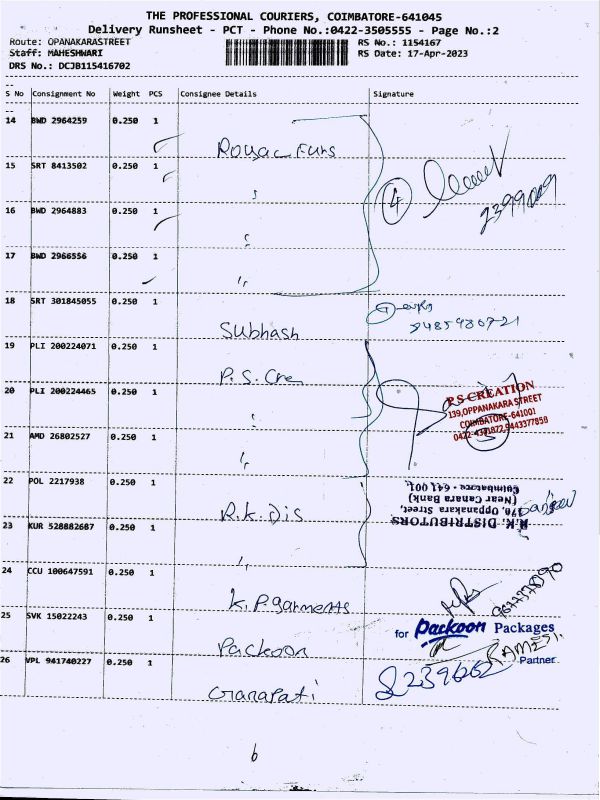 THE PROFESSIONAL COURIERS, COIMBATORE-641045
Delivery Runsheet - PCT - Phone No.:0422-3505555 - Page No.:2
Route: OPANAKARASTREET
RS No.: 1154167
Staff: MAHESHWARI
RS Date: 17-Apr-2023
DRS No.: DCJB115416702
S No Consignment No Weight PCS Consignee Details Signature
14 BWD 2964259 0.250 1
15 SRT 8413502 0.250 1
4
16 BWD 2964883 0.250 1
17 BWD 2966556 0.250 1
18 SRT 301845055 0.250 1 Subhash
19 PLI 200224071 0.250 1 P.S. Cre
20 PLI 200224465 0.250 1
P.S CREATION
139,OPPANAKARA STREET
COIMBATORE-641001
21 AMD 26802527 0.250 1
22 POL 2217938 0.250 1 R.K. Dis
R.K. DISTRIBUTORS
Oppanakara Street,
(Near Canara Bank)
Coimbatore - 641 001.
23 KUR 528882687 0.250 1
24 CCU 100647591 0.250 1 K.P. garments
25 SVK 15022243 0.250 1 Packoon
for Packoon Packages
RAMESH
Partner.
26 VPL 941740227 0.250 1 Ganapati
6